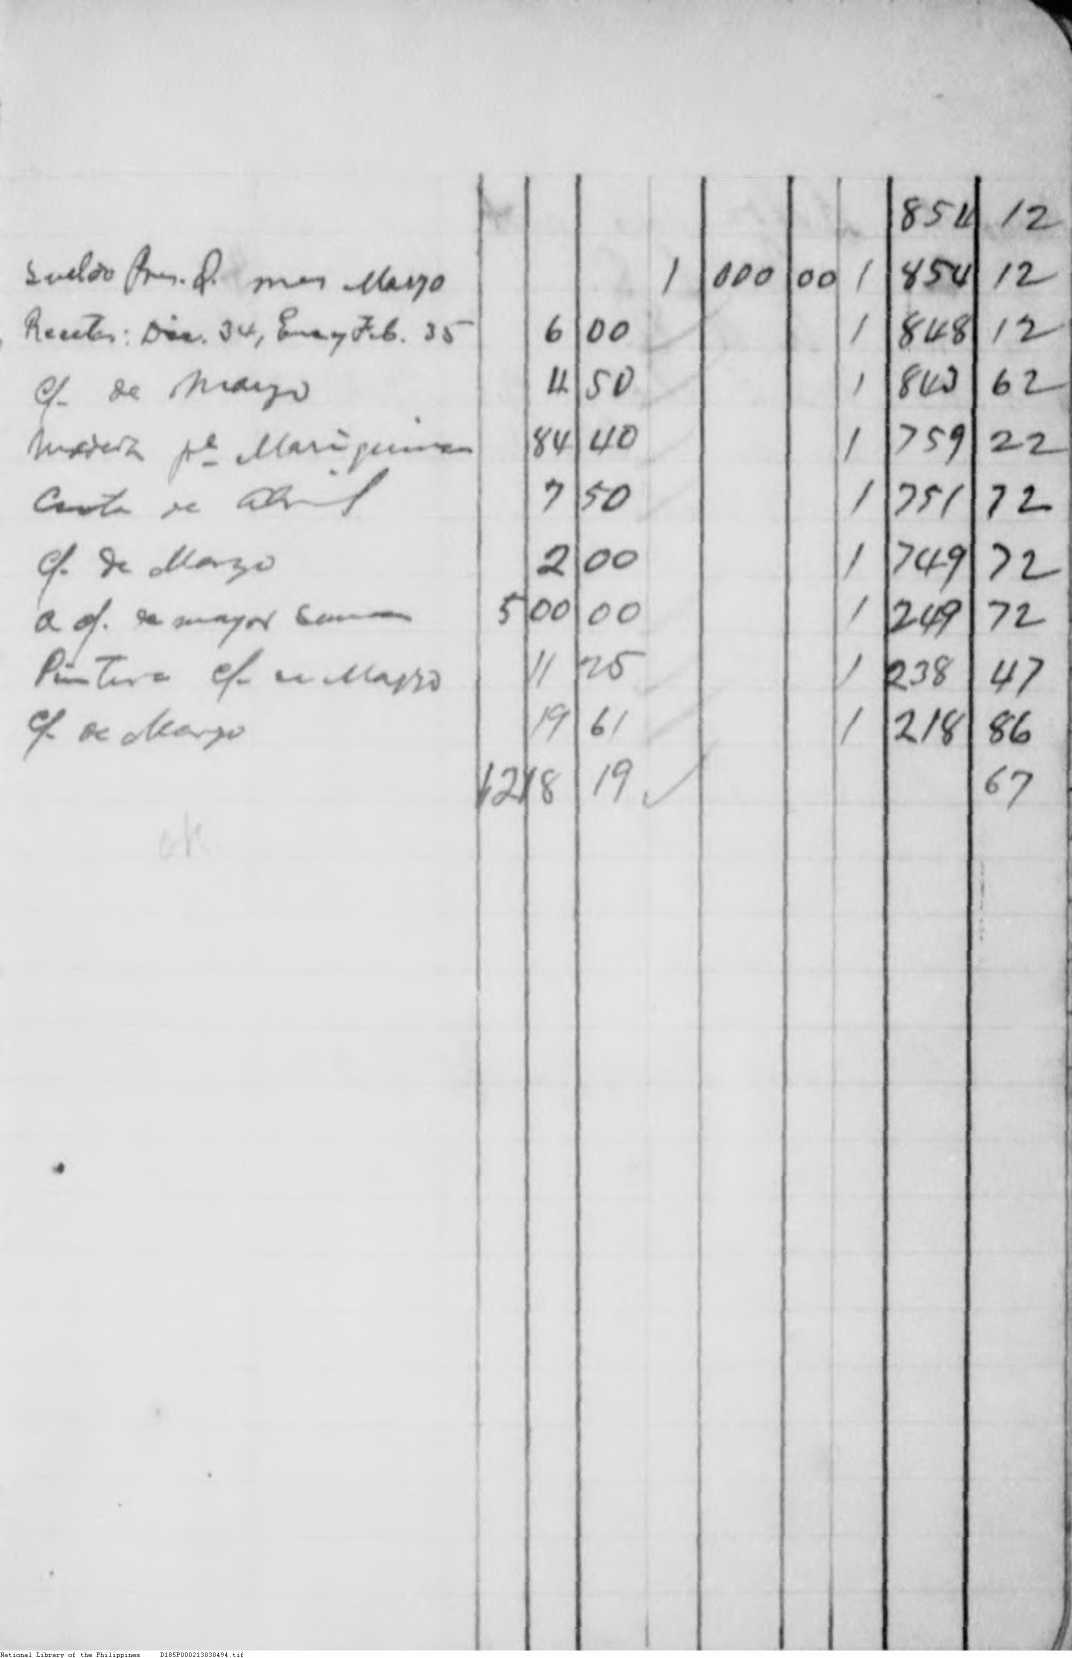 854 12
Sueldo Pres. Q. mes Marzo 1 000 00 1 854 12
Recetas: Dic. 34, Ene y Feb. 35 6 00 1 848 12
cf. de Marzo 4 50 1 843 62
Madera pa Mariquina 84 40 1 759 22
Cuota de Abril 7 50 1 751 72
cf. de Marzo 2 00 1 749 72
a cf. de mayor suma 500 00 1 249 72
Pintura cf. de Marzo 11 25 1 238 47
cf. de Marzo 19 61 1 218 86
1218 19 ✓ 67
ok.
National Library of the Philippines D185P000213838494.tif